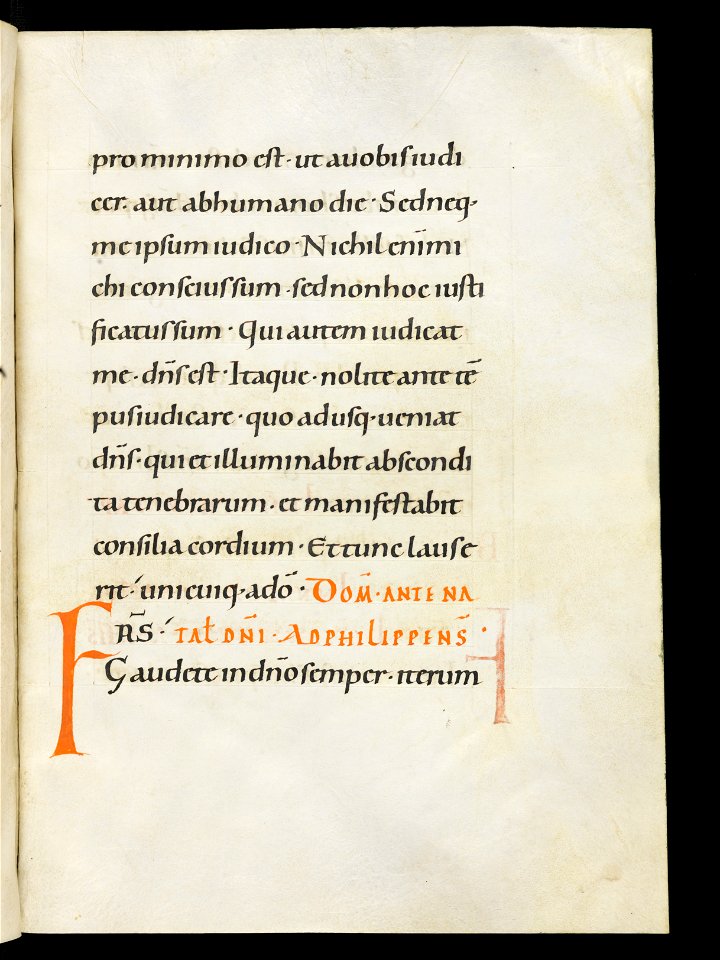 pro minimo est · ut auobis iudi
cer · aut abhumano die · Sedneq·
me ipsum iudico · Nichil enim̄ mi
chi conscius sum · sed nonhoc iusti
ficatus sum · Qui autem iudicat
me · dn̄s est · Itaque · nolite ante tē
pus iudicare · quo adusq· ueniat
dn̄s · qui et illuminabit abscondi
ta tenebrarum · et manifestabit
consilia cordium · Et tunc laus e
rit · unicuiq· adō · DOM̄ · ANTE NA
FRS̄ · TAL DN̄I · AD PHILIPPENS̄ ·
Gaudete in dn̄o semper · iterum